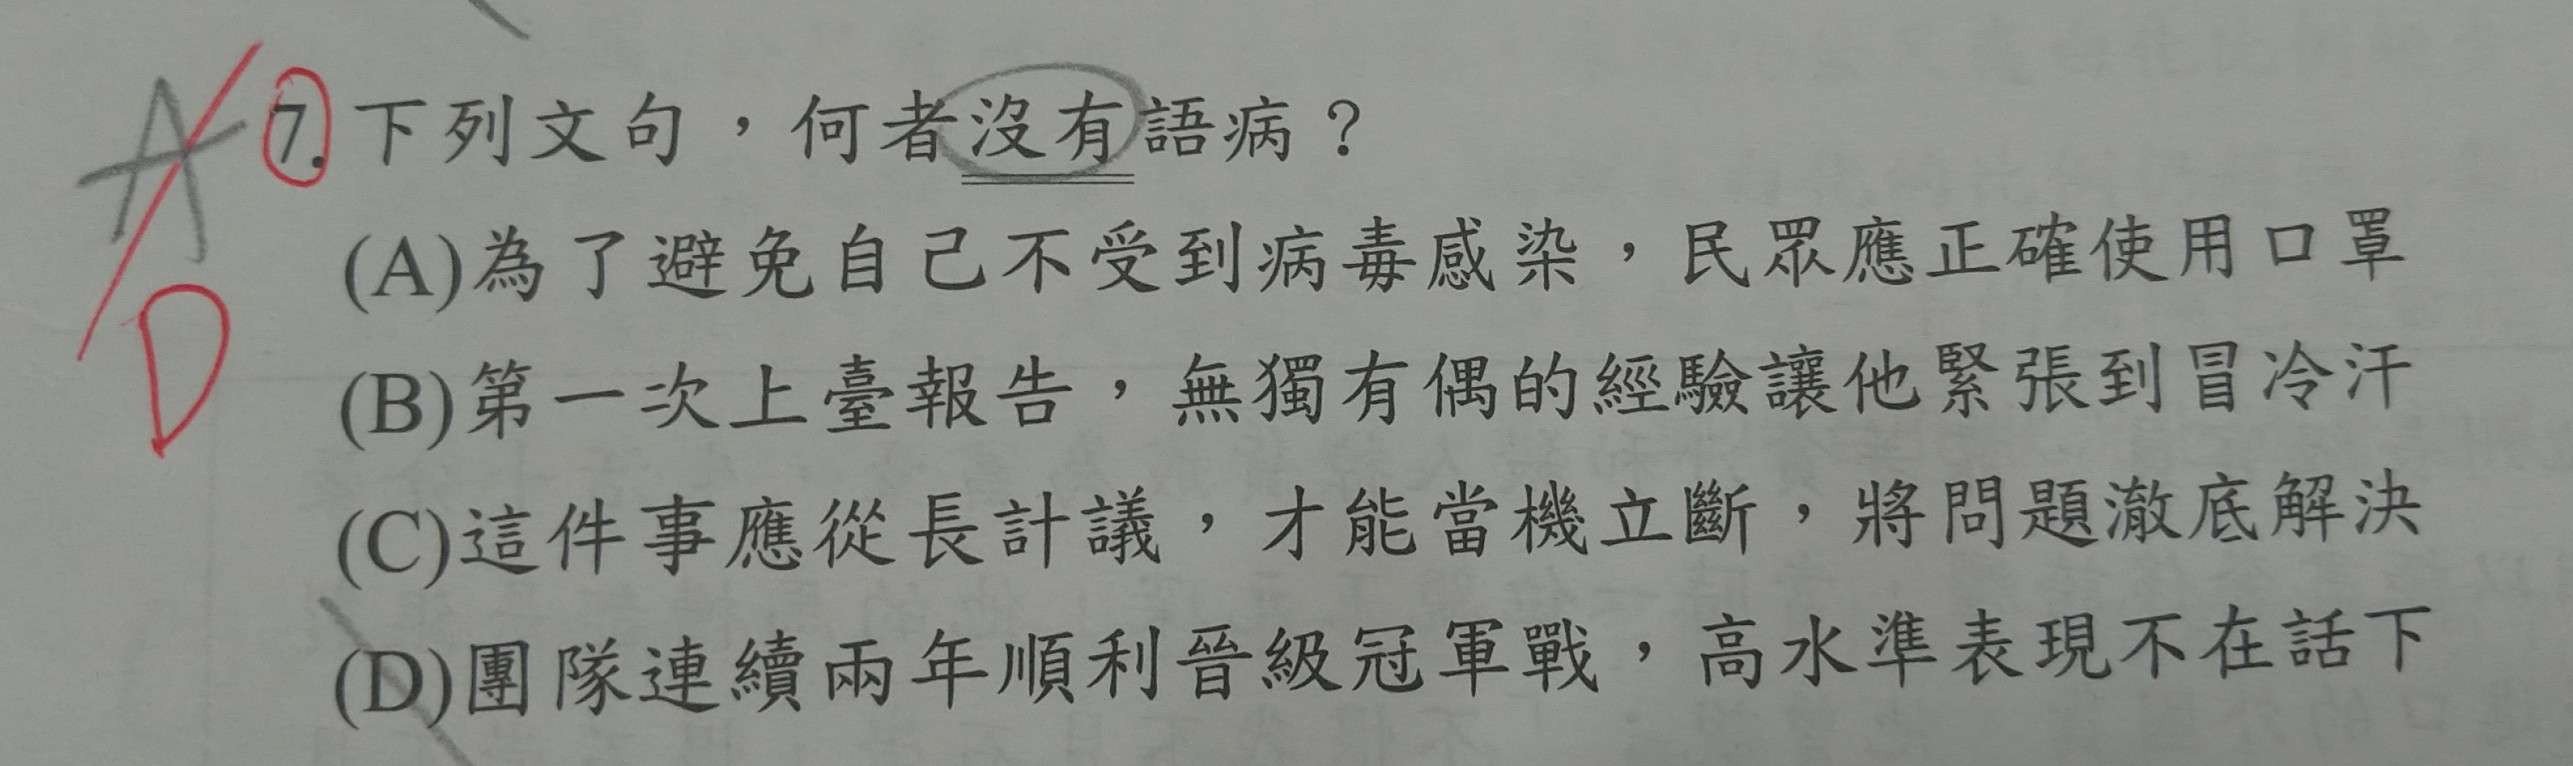 A 7.下列文句，何者沒有語病？
(A)為了避免自己不受到病毒感染，民眾應正確使用口罩
D
(B)第一次上臺報告，無獨有偶的經驗讓他緊張到冒冷汗
(C)這件事應從長計議，才能當機立斷，將問題澈底解決
(D)團隊連續兩年順利晉級冠軍戰，高水準表現不在話下